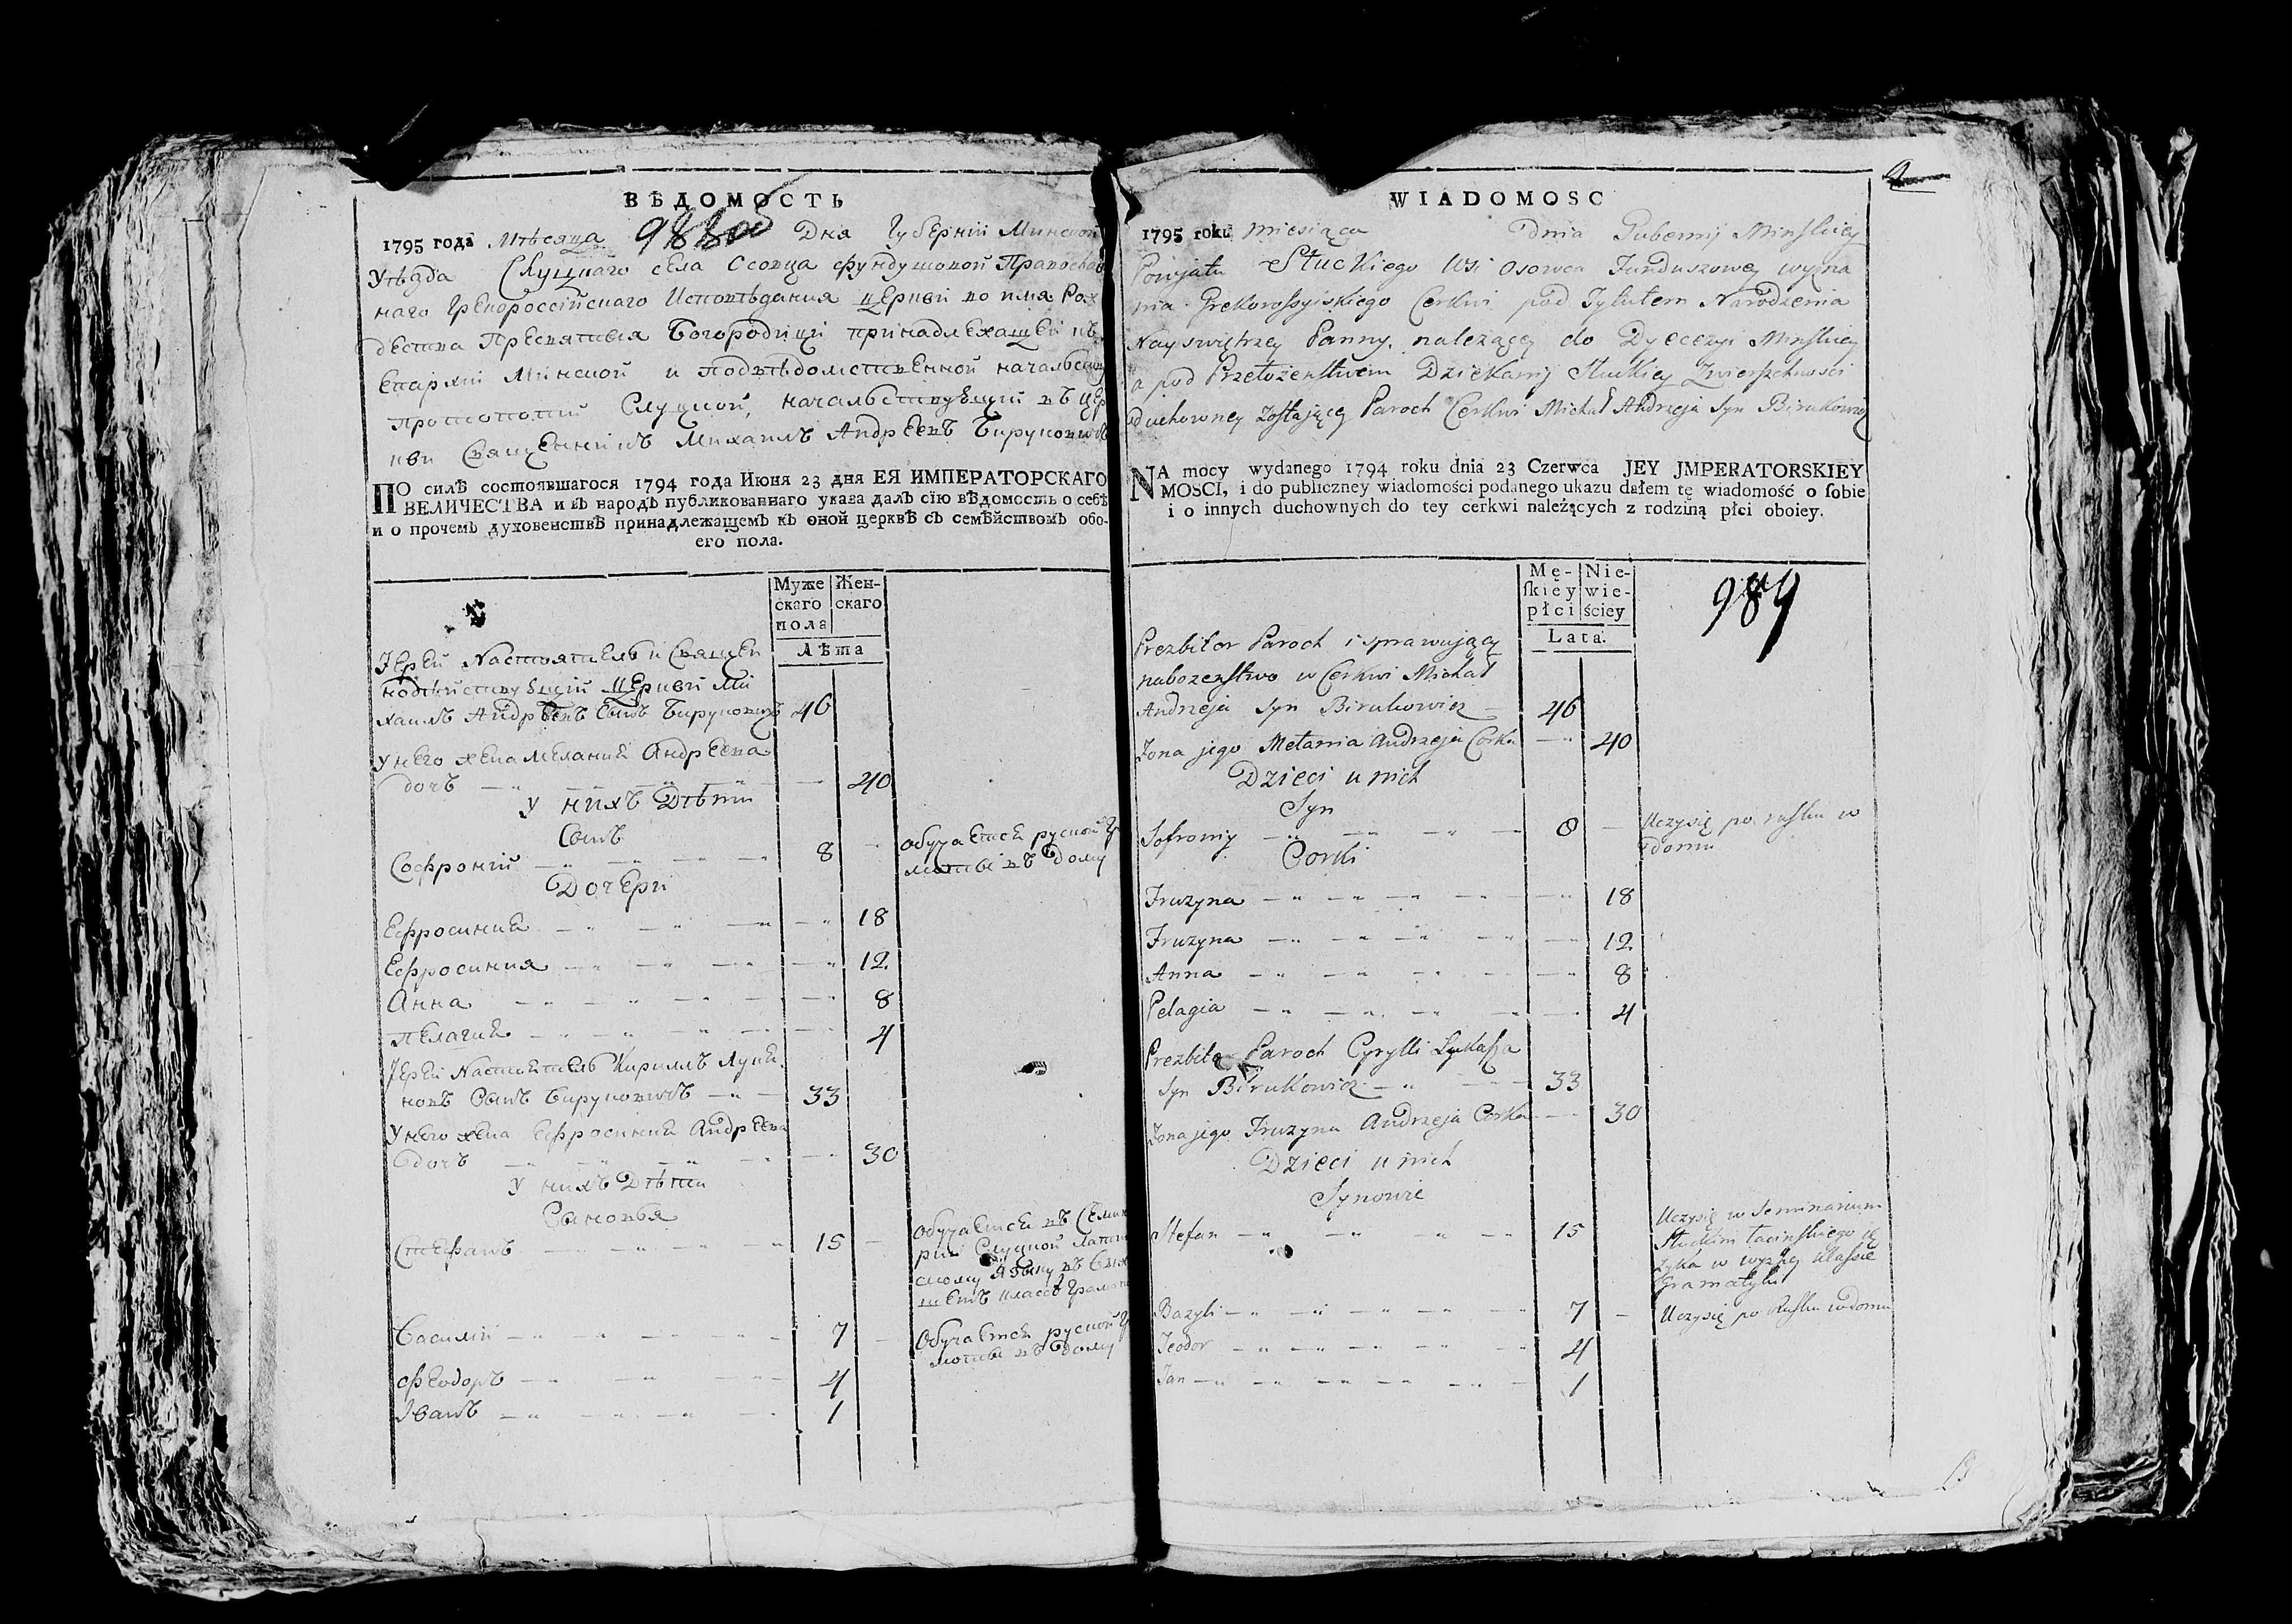 ВѢДОМОСТЬ
1795 года Мѣсяца 988 об Дня Губерніи Минской
Уѣзда Слуцкаго села Осовца фундушовой Православ
наго Грекороссійскаго Исповѣданія церкви во имя Рож
дества Пресвятыя Богородицы принадлежащей къ
Епархіи Минской и подвѣдомственной начальству
протопопіи Слуцкой, начальствующій въ цер
кви Священникъ Михаилъ Андреевъ Бируковичъ
ПО силѣ состоявшагося 1794 года Июня 23 дня ЕЯ ИМПЕРАТОРСКАГО
ВЕЛИЧЕСТВА и въ народъ публикованнаго указа далъ сїю вѣдомость о себѣ
и о прочемъ духовенствѣ принадлежащемъ къ оной церквѣ съ семѣйствомъ обо-
его пола.
Муже Жен-
скаго скаго
пола
Лѣта
Іерей Настоятель и Священ
нодѣйствующій церкви Ми
хаилъ Андреевъ Сынъ Бируковичъ 46
у него жена Мелания Андреева
дочь 40
У нихъ Дѣти
Сынъ
Софроній 8 обучается руской гр
мотѣ въ дому
Дочери
Ефросиния 18
Ефросиния 12
Анна 8
Пелагия 4
Іерей Настоятель Кириллъ Луки
новъ Сынъ Бируковичъ 33
У него жена Ефросиния Андреева
дочь 30
У нихъ Дѣти
Сыновья
Стефанъ 15 Обучается въ Семина
ріи Слуцкой Латин
скому Языку въ
классѣ Грамат
Василій 7 Обучается руской г
мотѣ въ дому
Феодоръ 4
Іванъ 1
WIADOMOSC
1795 roku miesiąca dnia Gubernij Minskiey
Powjatu Słuckiego Wsi Osowca Funduszowey wyzna
nia Grekorossyiskiego Cerkwi pod Tytułem Narodzenia
Nayswiętrzey Panny, należącey do Dyecezyi Minskiey
a pod Przełożenstwem Dziekanij Słuckiey Zwierzchności
duchowney zostającey Paroch Cerkwi Michał Andrzeja Syn Birukowicz
NA mocy wydanego 1794 roku dnia 23 Czerwca JEY JMPERATORSKIEY
MOSCI, i do publiczney wiadomości podanego ukazu dałem tę wiadomość o sobie
i o innych duchownych do tey cerkwi należących z rodziną płci oboiey.
Mę- Nie-
skiey wie-
płci ściey
Lata.
989
Prezbitor Paroch i sprawujący
nabozenstwo w Cerkwi Michał
Andrzeja Syn Birukowicz 46
Zona jego Melania Andrzeja Corka 40
Dzieci u nich
Syn
Sofroniy 8 Uczysię po rusku w
domu
Corki
Fruzyna 18
Fruzyna 12
Anna 8
Pelagia 4
Prezbite Paroch Cyrylli Łukasza
Syn Birukowicz 33
Zona jego Fruzyna Andrzeja Corka 30
Dzieci u nich
Synowie
Stefan 15 Uczysię w Seminarium
Słuckim łacinskiego ję
zyka w wyzszey klassie
Gramatyki
Bazyli 7 Uczysię po Rusku w domu
Teodor 4
Jan 1